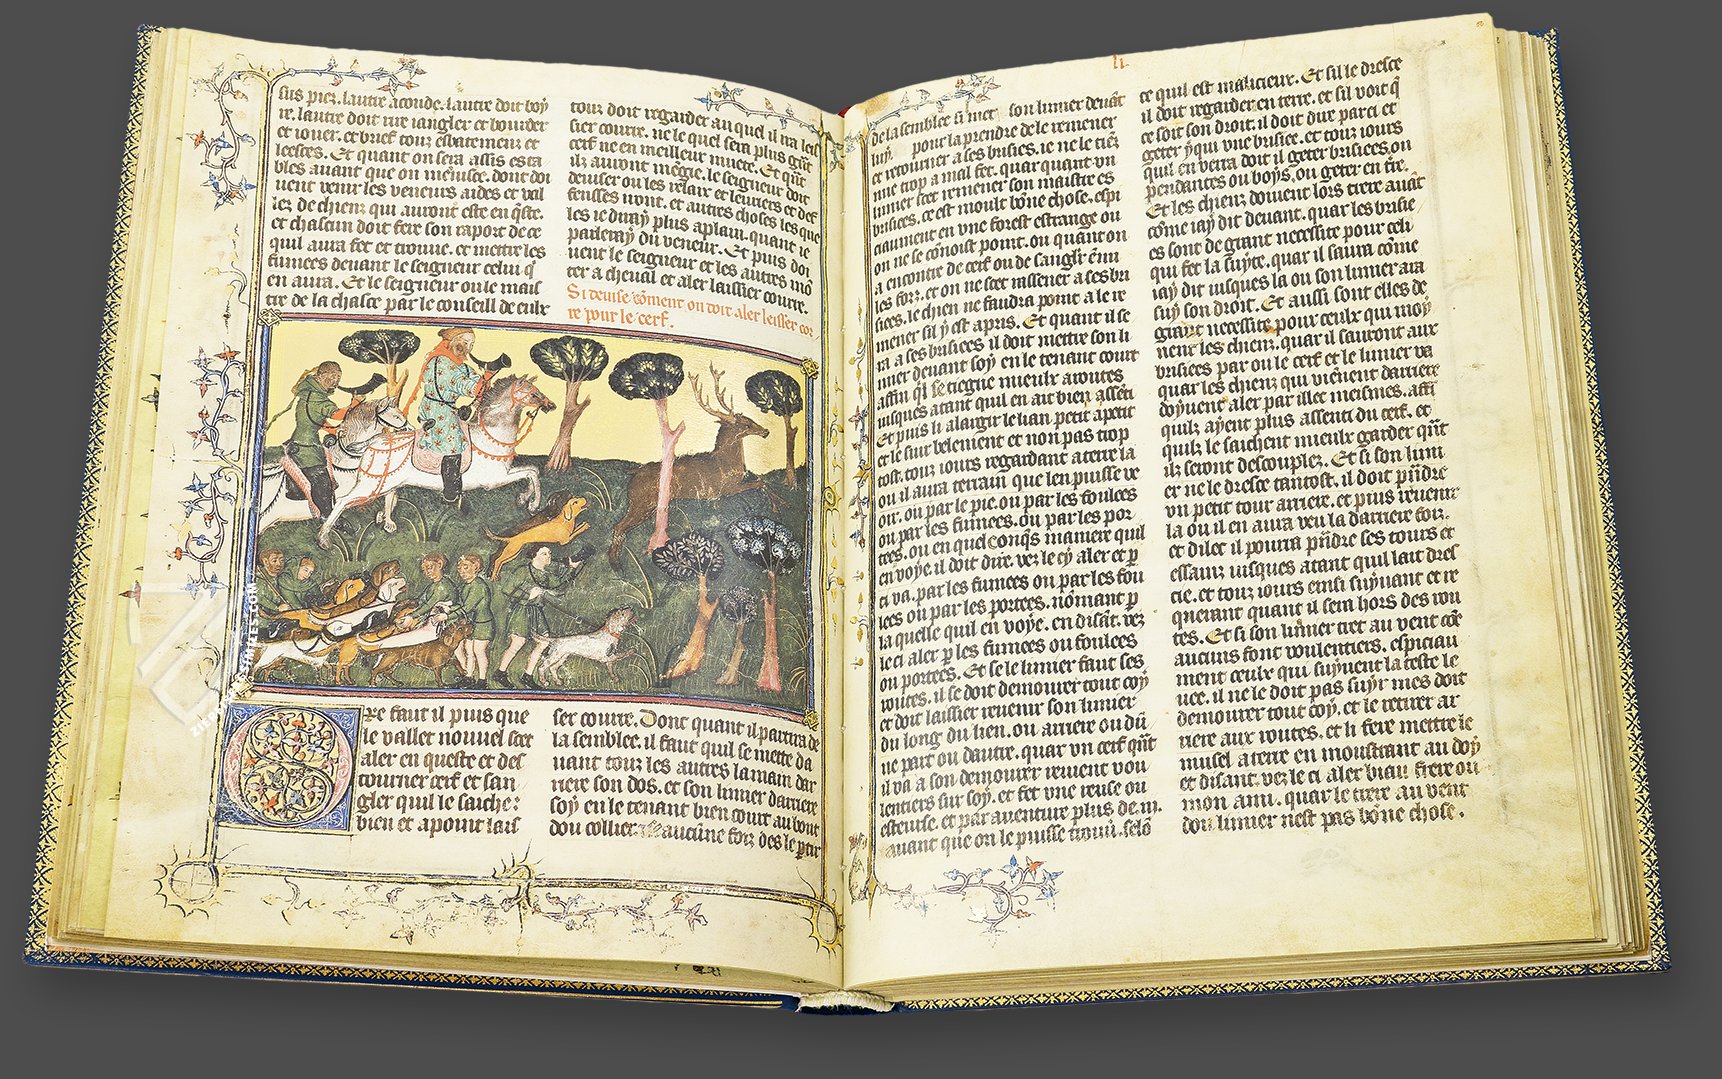 sus piez. lautre acoude. lautre doit boy
re. lautre doit rire iangler et bourder
et iouer. et brief touz esbatemenz et
leesces. Et quant on sera assis es ta
bles auant que on meniusce. dont doi
uent venir les veneurs aides et val
lez de chienz qui auront este en q̃ste.
et chascun doit fere son raport de ce
quil aura fet et trouue. et mettre les
fumees deuant le seigneur celui q̃
en aura. Et le seigneur ou le mais
tre de la chasce par le conseill de eulx
touz doit regarder au quel il ira lais
sier courre. ne le quel sera plus grāt
cerf ne en meilleur muete. Et quāt
ilz auront megie. le seigneur doit
deuiser ou les relaiz et leuriers et def
fenses iront. et autres choses les que
les ie diray plus aplain. quant ie
parleray du veneur. Et puis doi
uent le seigneur et les autres mō
ter a cheual et aler laissier courre.
Si deuise cōment on doit aler leisser cor
re pour le cerf.
Ore faut il puis que
le vallet nouuel scet
aler en queste et des
tourner cerf et san
gler quil le saiche
bien et apoint lais
ser courre. Dont quant il partira de
la semblee. il faut quil se mette da
uant touz les autres la main dar
riere son dos. et son limer darriere
soy en le tenant bien court au bout
dou collier. aucūne foiz des le ptir
li.
de la semblee si met son limer deuāt
luy. pour laprendre de le remener
et retourner a ses brisies. ie ne le tiē
mie trop a mal fet. quar quant vn
limer scet remener son maistre es
brisees. ce est moult bōne chose. espi
ciaument en vne forest estrange ou
on ne se cōnoist point. ou quāt on
a encontre de cerf ou de sangler ēnu
les forz. et on ne scet rassener a ses bri
sees. le chien ne faudra point a le re
mener sil y est apris. Et quant il se
ra a ses brisees il doit mettre son li
mer deuant soy en le tenant court
affin q̄l se tiegne mieulx aroutes
iusques atant quil en ait bien assēti
Et puis li alargir le lian petit apetit
et le suir belement et non pas trop
tost. touz iours regardant a terre la
ou il aura terrain que len puisse ve
oir. ou par le pie. ou par les foulees
ou par les fumees. ou par les por
tees. ou en quelconq̄s maniere quil
en voye. il doit dire. vez le cy aler et p
ci va. par les fumees ou par les fou
lees ou par les portees. nōmant p
la quelle quil en voye. en disāt. vez
le ci aler p les fumees ou foulees
ou portees. Et se le limer faut ses
routes. il se doit demourer tout coy
et doit laissier reuenir son limer
du long du lien. ou arriere ou dū
ne part ou dautre. quar vn cerf quāt
il va a son demourer reuient vou
lentiers sur soy. et fet vne reuse ou
esteuse. et par auenture plus de .iii.
auant que on le puisse trouu. selō
ce quil est malicieux. Et sil le dresce
il doit regarder en terre. et sil voit q̄
ce soit son droit. il doit dire par ci et
geter y qui vne brisee. et touz iours
quil en verra doit il geter brisees. ou
pendantes ou boys. ou geter en tr̄e.
Et les chienz doiuent lors tiere auāt
cōme iay dit deuant. quar les brisie
es sont de grant necessite pour celi
qui fet la suyte. quar il saura cōme
iay dit iusques la ou son limer aira
suy son droit. Et aussi sont elles de
grant necessite pour ceulx qui moy
nent les chienz. quar il sauront aux
brisees par ou le cerf et le limer va
quar les chienz qui viēnent darriere
doyuent aler par illec meismes. affi
quilz ayent plus assenti du cerf. et
quilz le saichent mieulx garder quāt
ilz seront descouplez. Et si son limi
er ne le dresce tantost. il doit prādre
vn petit tour arriere. et puis reuenir
la ou il en aura veu la darriere foiz.
et dilec il pourra prādre ses tours et
essainz iusques atant quil lait dres
cie. et touz iours einsi suyuant et re
querant quant il sera hors des rou
tes. Et si son limer tiret au vent cōe
aucuns font voulentiers. espiciau
ment ceulx qui suyuent la teste le
uee. il ne le doit pas suyr mes doit
demourer tout coy. et le retirer ar
riere aux routes. et li fere mettre le
musel a terre en moustrant au doy
et disant. vez le ci aler biau frere ou
mon ami. quar le tiere au vent
dou limier nest pas bōne chose.